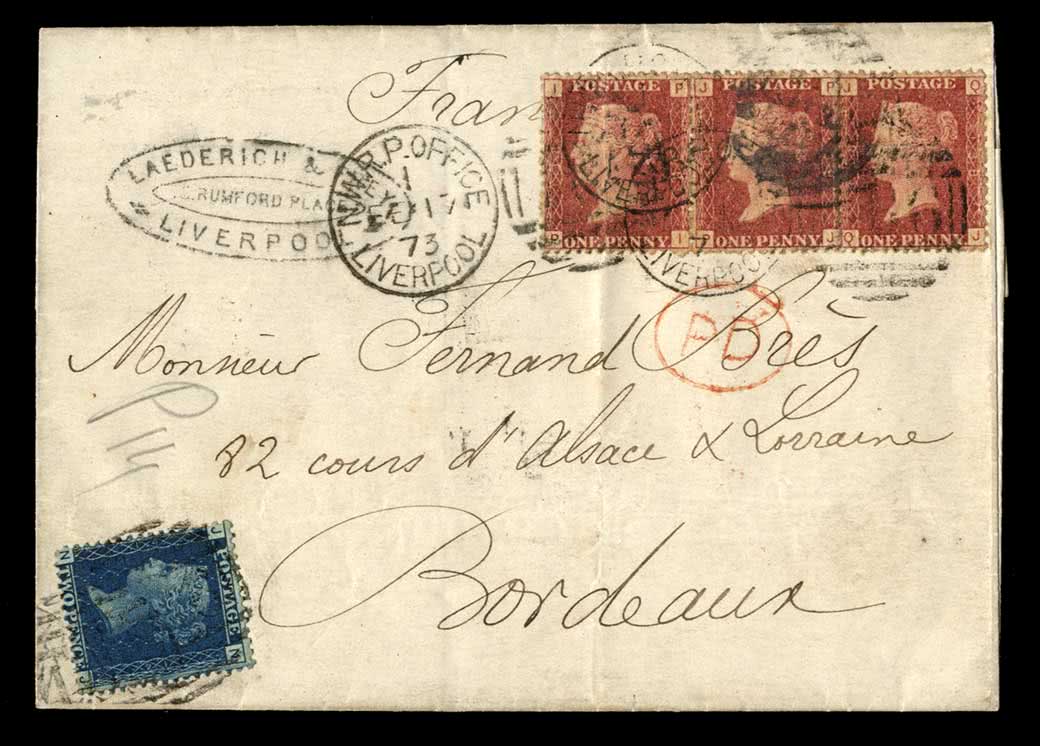 LAEDERICH &
RUMFORD PLAC
LIVERPOO
N.W.R.P. OFFICE
1
17
73
LIVERPOOL
I P
POSTAGE
ONE PENNY
P I
J P
POSTAGE
ONE PENNY
P J
J Q
POSTAGE
ONE PENNY
Q J
73
LIVERPOOL
7
LIVERPOOL
Fran
PD
Monsieur Fernand Brès
82 cours d'Alsace & Lorraine
Bordeaux
J N
POSTAGE
TWO PENCE
N J